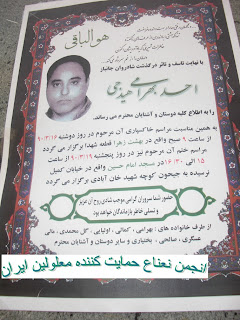 هوالباقی
با نهایت تاسف و تاثر درگذشت شادروان جانباز
احمد
را به اطلاع کلیه دوستان و آشنایان محترم می رساند.
به همین مناسبت مراسم خاکسپاری آن مرحوم در روز دوشنبه ۹۰/۳/۱۶
از ساعت ۹ صبح واقع در بهشت زهرا قطعه شهدا برگزار می گردد
مراسم ختم آن مرحوم نیز در روز پنجشنبه ۹۰/۳/۱۹ از ساعت
۱۵ الی ۱۶/۳۰ در مسجد امام حسن واقع در خیابان کمیل
نرسیده به جیحون کوچه شهید خان آبادی برگزار می گردد
حضور شما سروران گرامی موجب شادی روح آن عزیز
و تسلی خاطر بازماندگان خواهد بود
از طرف خانواده های : بهرامی - کمالی - اولیایی - گل محمدی - مالی
عسگری - صالحی - بختیاری و سایر دوستان و آشنایان محترم
انجمن نعناع حمایت کننده معلولین ایران